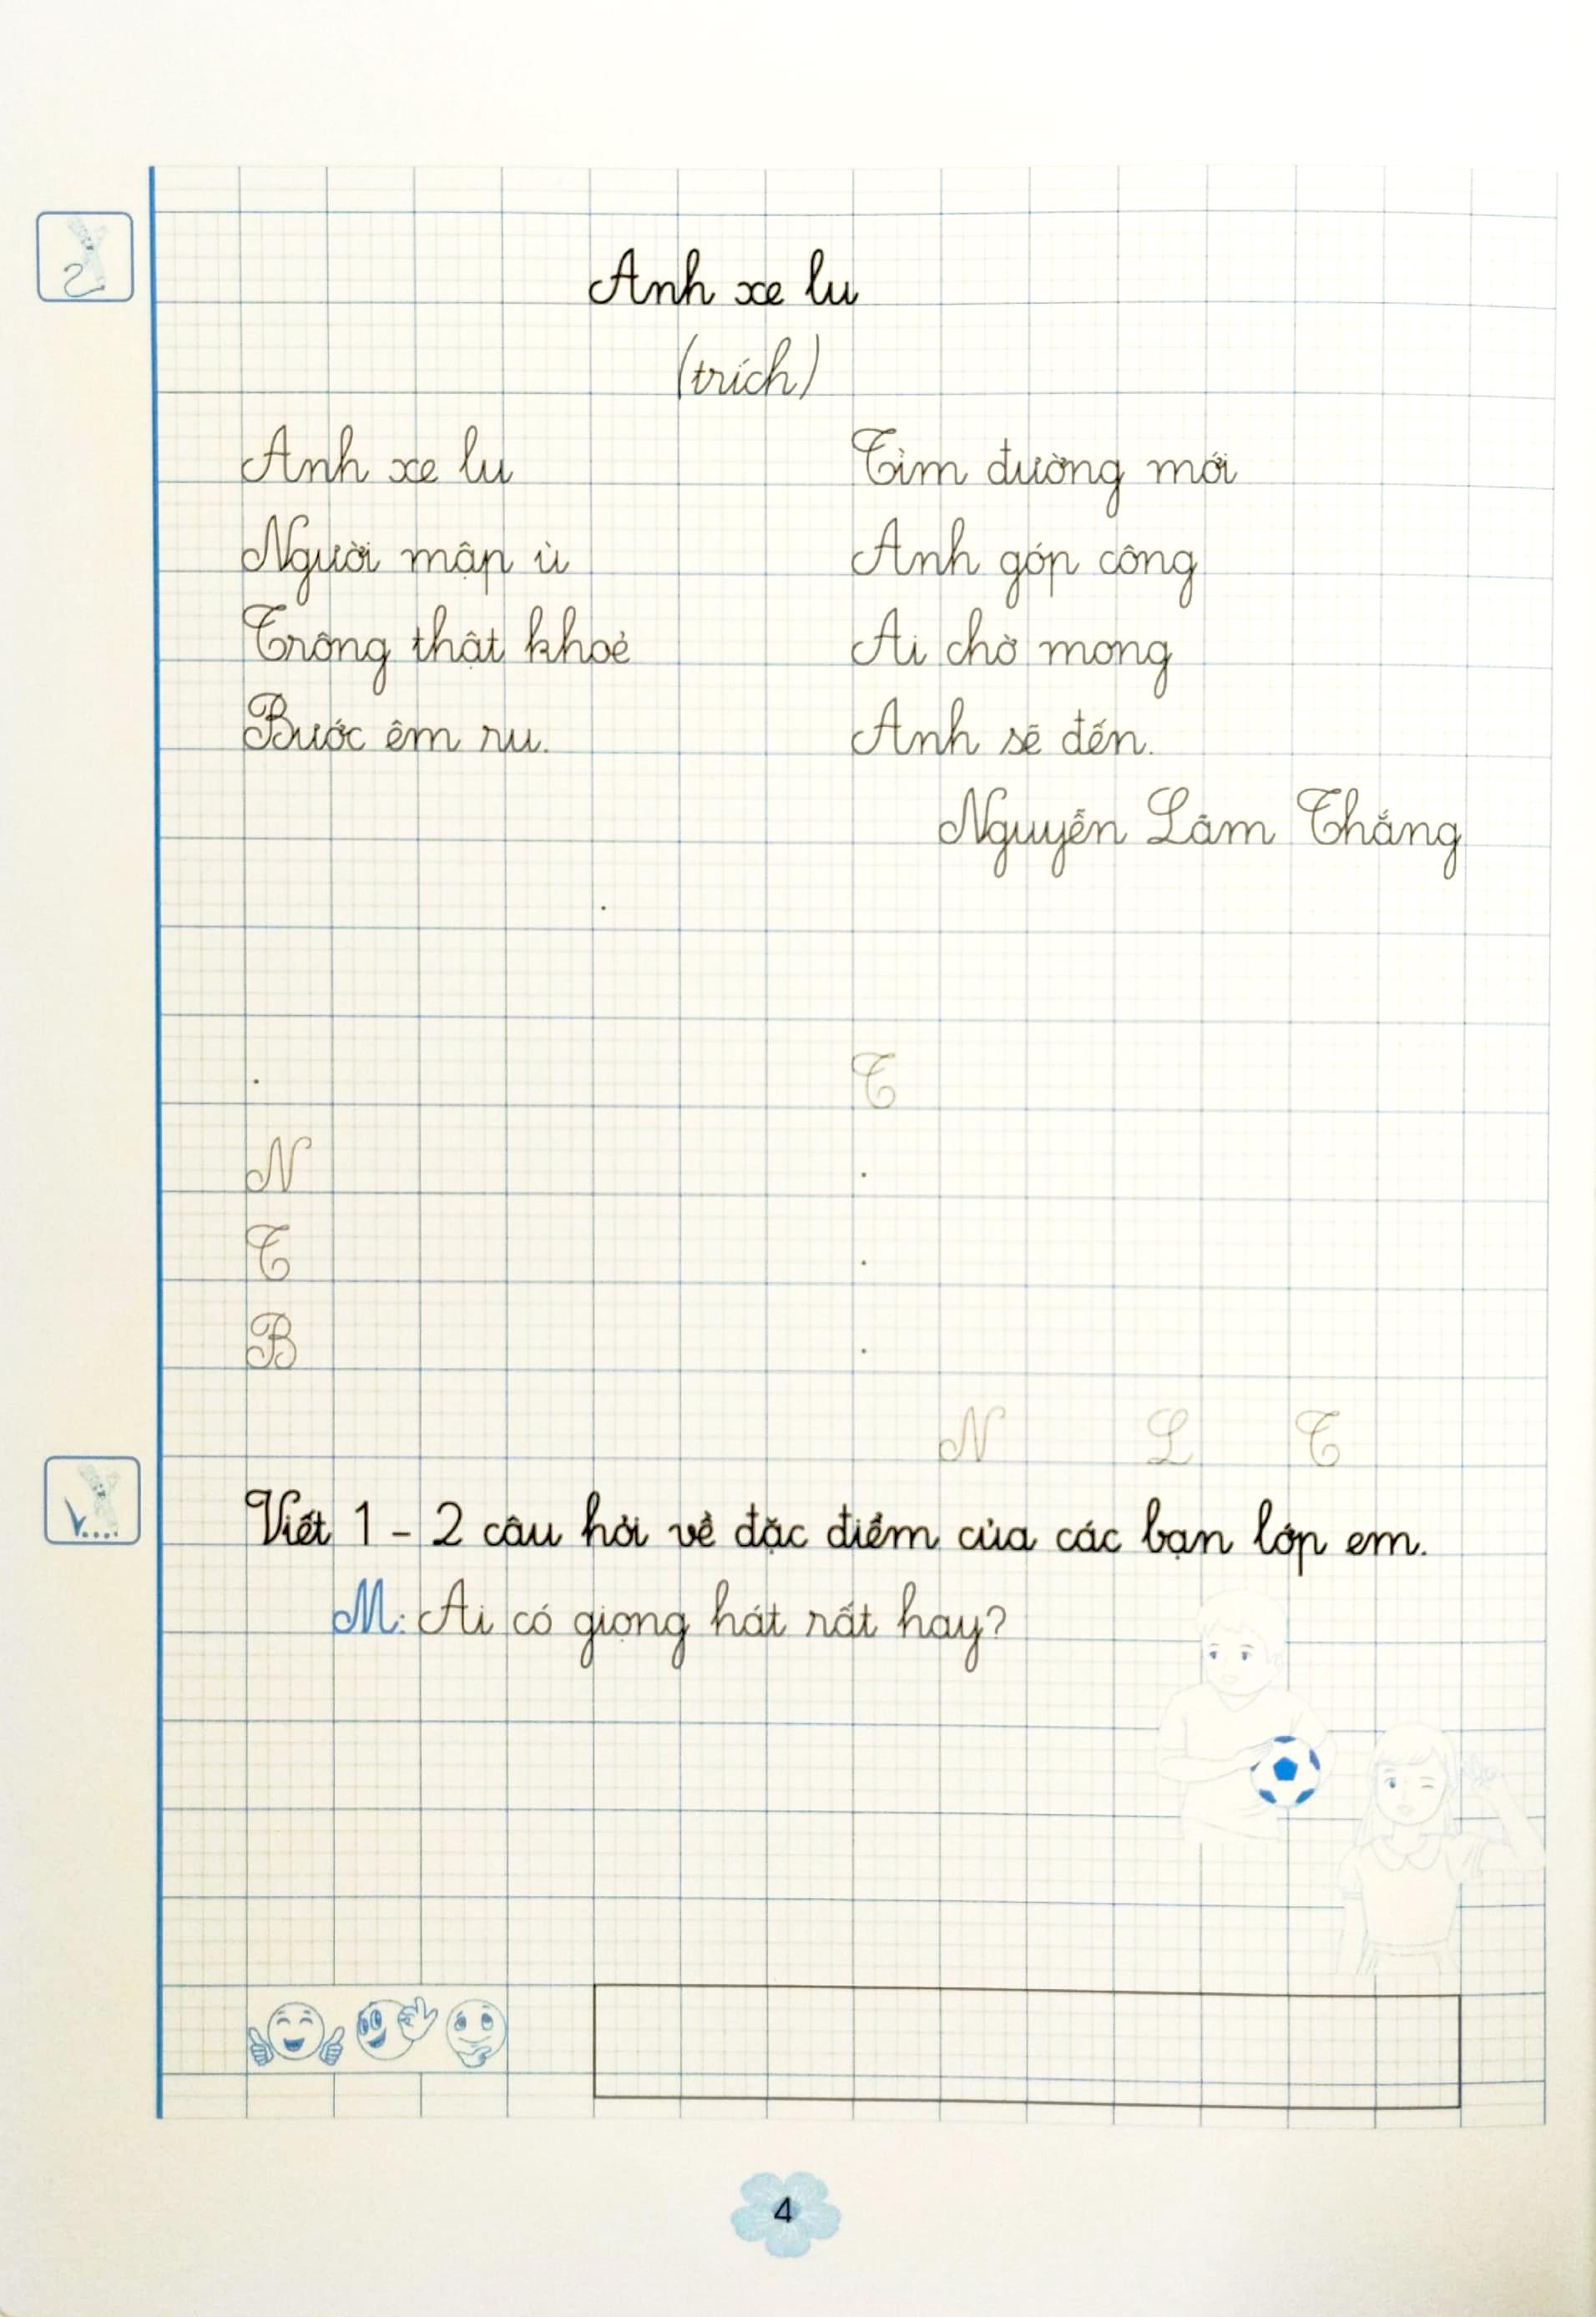 Anh xe lu
(trích)
Anh xe lu
Người mập ù
Trông thật khoẻ
Bước êm ru.
Tìm đường mới
Anh góp công
Ai chờ mong
Anh sẽ đến.
Nguyễn Lãm Thắng
T
N
T
B
N L T
Viết 1 - 2 câu hỏi về đặc điểm của các bạn lớp em.
M: Ai có giọng hát rất hay?
4